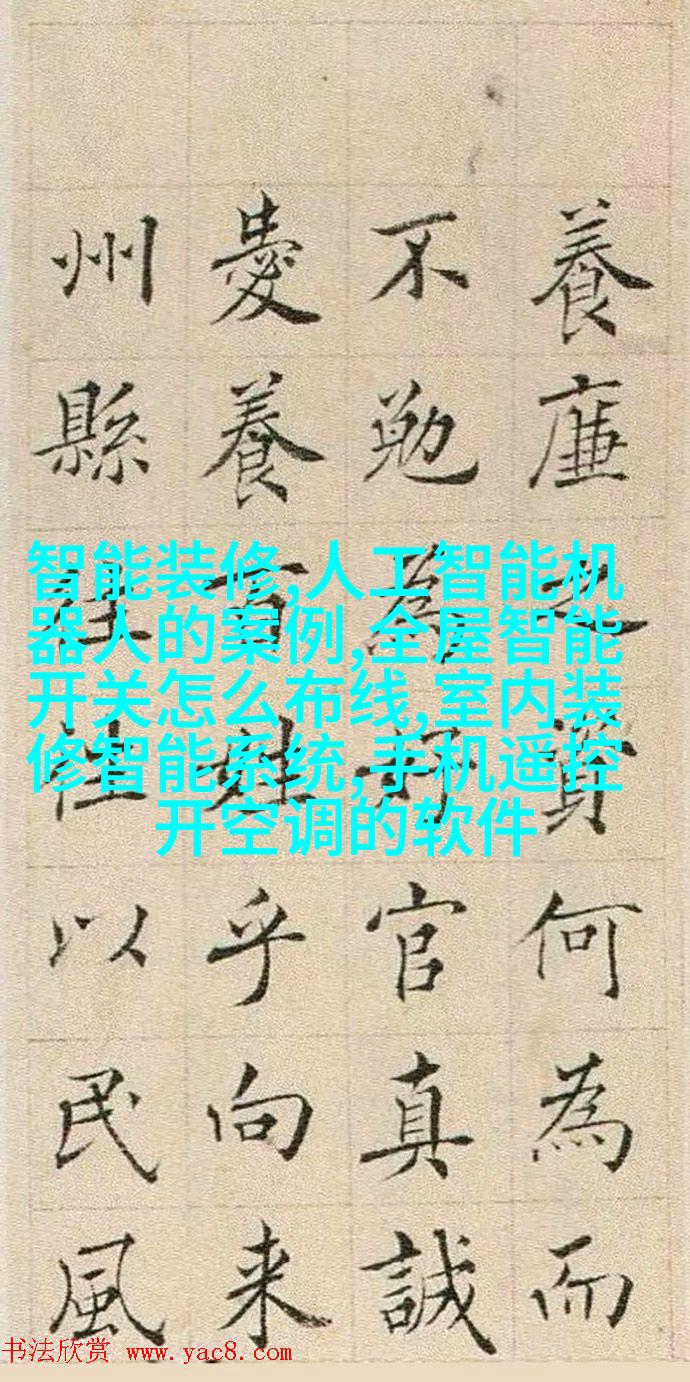 養廉之資何為而
不勉為好官真誠
愛養百姓乎向来
州縣往往以民風
智能装修,人工智能机
器人的案例,全屋智能
开关怎么布线,室内装
修智能系统,手机遥控
开空调的软件
书法欣赏 www.yac8.com